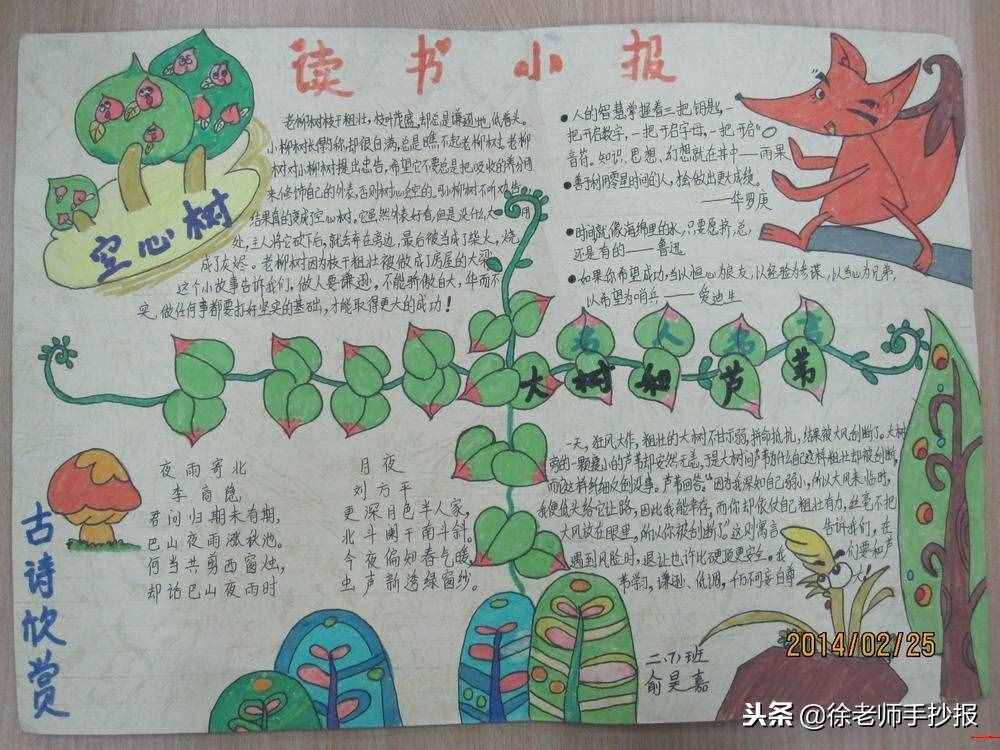 读书小报
空心树
老柳树枝干粗壮,枝叶茂盛,却总是谦逊地低着头。
小柳树长得
却很自满,总是瞧不起老柳树。老柳
树对小柳树提出忠告,希望它不要总是把吸收的养分用
来修饰自己的外表,否则树心会空的。可小柳树不听劝告,
结果真的变成了空心树。它虽然外表好看,但是没什么大用
处,主人将它砍下后,就去弃在旁边,最后被当成了柴火,烧
成了灰烬。老柳树因为枝干粗壮被做成了房屋的大梁。
这个小故事告诉我们,做人要谦逊,不能骄傲自大,华而不
实,做任何事都要打好坚实的基础,才能取得更大的成功!
●人的智慧掌握着三把钥匙,一
把开启数字,一把开启字母,一把开启
音符。知识、思想、幻想就在其中——雨果
●善于利用零星时间的人,才会做出更大成绩。
——华罗庚
●时间就像海绵里的水,只要愿挤,总
还是有的——鲁迅
●如果你希望成功,当以恒心为良友,以经验为参谋,以当心为兄弟,
以希望为哨兵——爱迪生
名人名言
大树和芦苇
一天,狂风大作,粗壮的大树不甘示弱,拼命抵抗,结果被大风刮断了。大树
旁的一颗弱小的芦苇却安然无恙,于是大树问芦苇为什么自己这样粗壮却被刮断,
而
这样纤细
却没事。芦苇回答:“因为我深知自己弱小,所以大风来临时,
我便低头给它让路,因此我能幸存,而你却依仗自己粗壮有力,丝毫不把
大风放在眼里,所以你被刮断了。这则寓言告诉我们,在
遇到风险时,退让也许比硬顶更安全。我们要和芦
苇学习,谦逊、低调,千万不要自尊
大!
夜雨寄北
李商隐
君问归期未有期,
巴山夜雨涨秋池。
何当共剪西窗烛,
却话巴山夜雨时
月夜
刘方平
更深月色半人家,
北斗阑干南斗斜。
今夜偏知春气暖,
虫声新透绿窗纱。
古诗欣赏
二、(7)班
俞昊嘉
2014/02/25
头条@徐老师手抄报